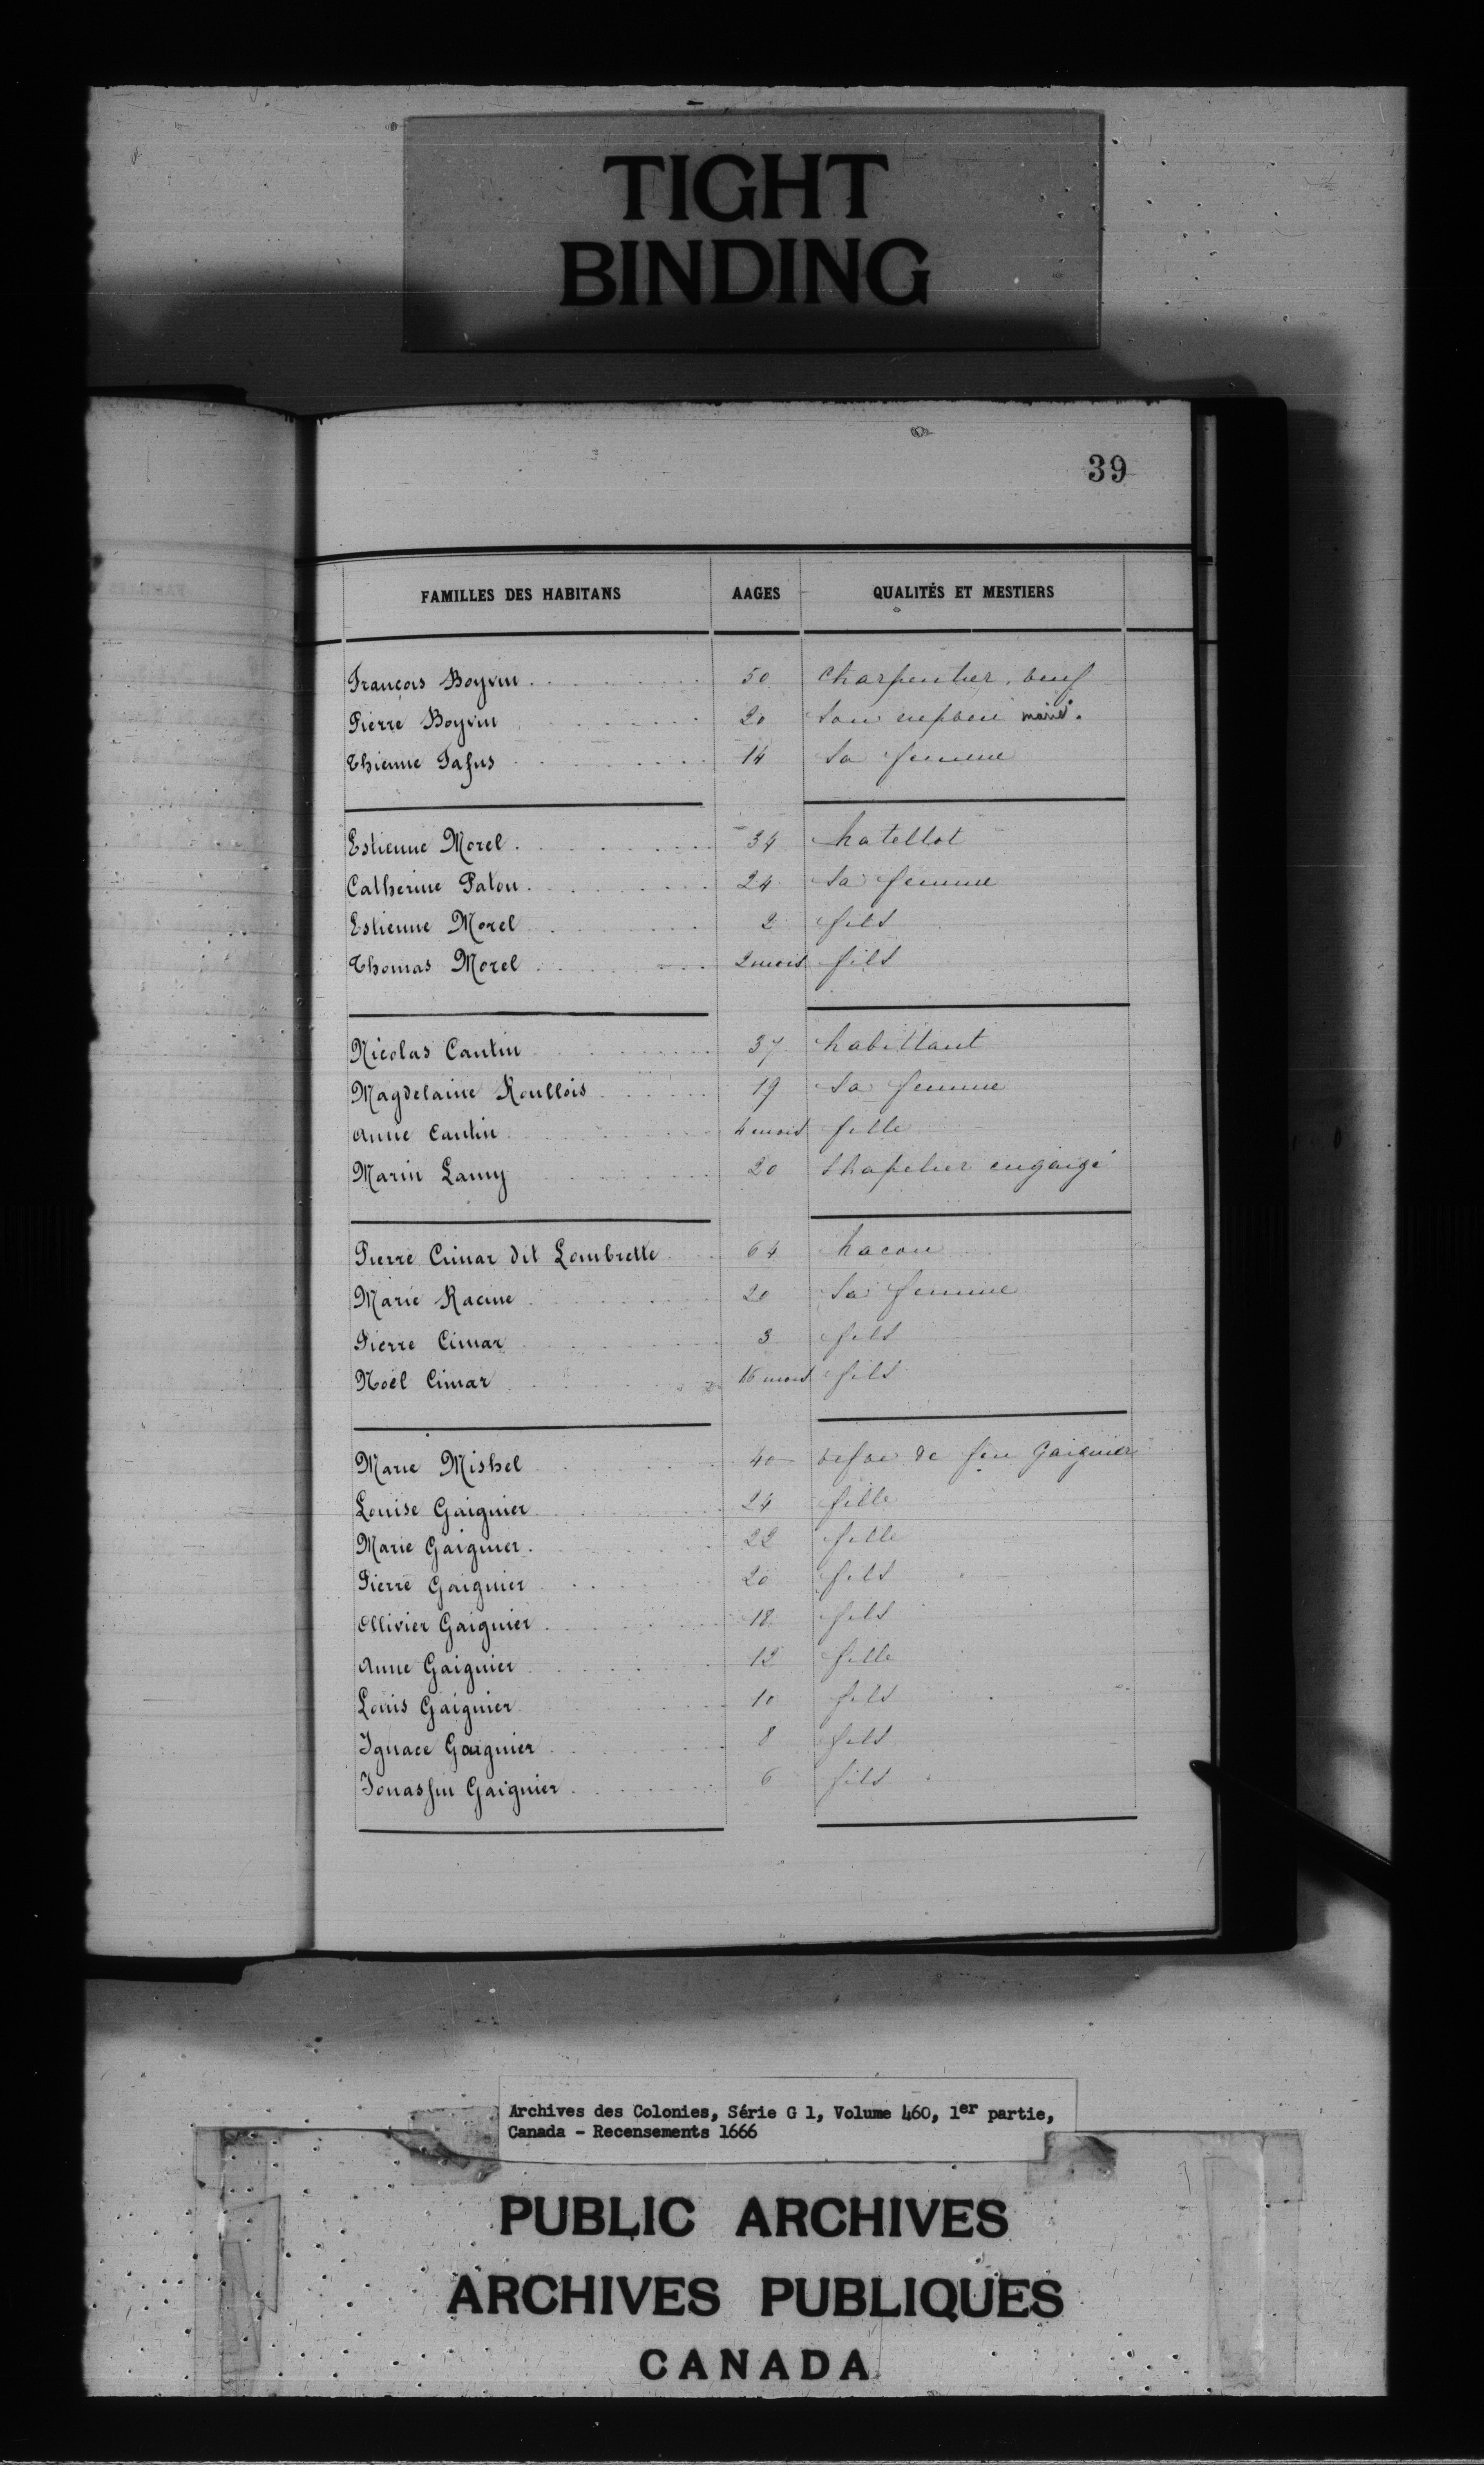 TIGHT
BINDING
39
FAMILLES DES HABITANS AAGES QUALITÉS ET MESTIERS
François Boyvin 50 Charpentier, veuf
Pierre Boyvin 20 Son nepveu marié.
Thienne Lafus 14 Sa femme
Estienne Morel 34 Matellot
Catherine Paton 24 Sa femme
Estienne Morel 2 fils
Thomas Morel 2 mois fils
Nicolas Cantin 37 habittant
Magdelaine Roullois 19 Sa femme
Anne Cantin 4 mois fille
Marin Lamy 20 Chapelier engaigé
Pierre Cimar dit Lombrette 64 Macon
Marie Racine 20 Sa femme
Pierre Cimar 3 fils
Noël Cimar 16 mois fils
Marie Mishel 40 vefve de feu Gaignier
Louise Gaignier 24 fille
Marie Gaignier 22 fille
Pierre Gaignier 20 fils
Ollivier Gaignier 18 fils
Anne Gaignier 12 fille
Louis Gaignier 10 fils
Ignace Gaignier 8 fils
Jonassin Gaignier 6 fils
Archives des Colonies, Série G 1, Volume 460, 1er partie,
Canada - Recensements 1666
PUBLIC ARCHIVES
ARCHIVES PUBLIQUES
CANADA